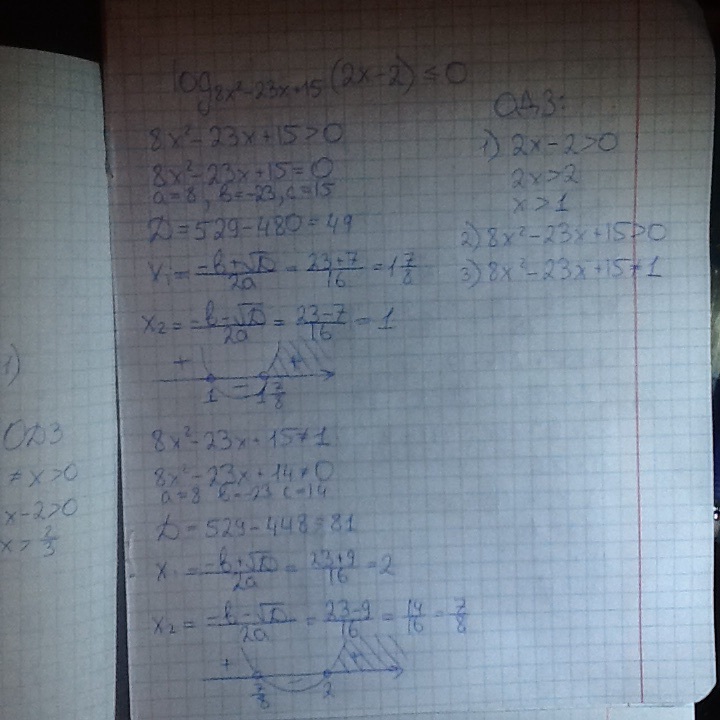 log_{8x²-23x+15}(2x-2) ≤ 0
8x²-23x+15>0
8x²-23x+15=0
a=8, b=-23, c=15
D=529-480=49
x₁ = (-b+√D)/2a = (23+7)/16 = 1 7/8
x₂ = (-b-√D)/2a = (23-7)/16 = 1
+ - +
1 1 7/8
8x²-23x+15≠1
8x²-23x+14≠0
a=8 b=-23 c=14
D=529-448=81
x₁ = (-b+√D)/2a = (23+9)/16 = 2
x₂ = (-b-√D)/2a = (23-9)/16 = 14/16 = 7/8
+ - +
7/8 2
ОДЗ:
1) 2x-2>0
2x>2
x>1
2) 8x²-23x+15>0
3) 8x²-23x+15≠1
1)
ОДЗ
≠x>0
x-2>0
x>2/3